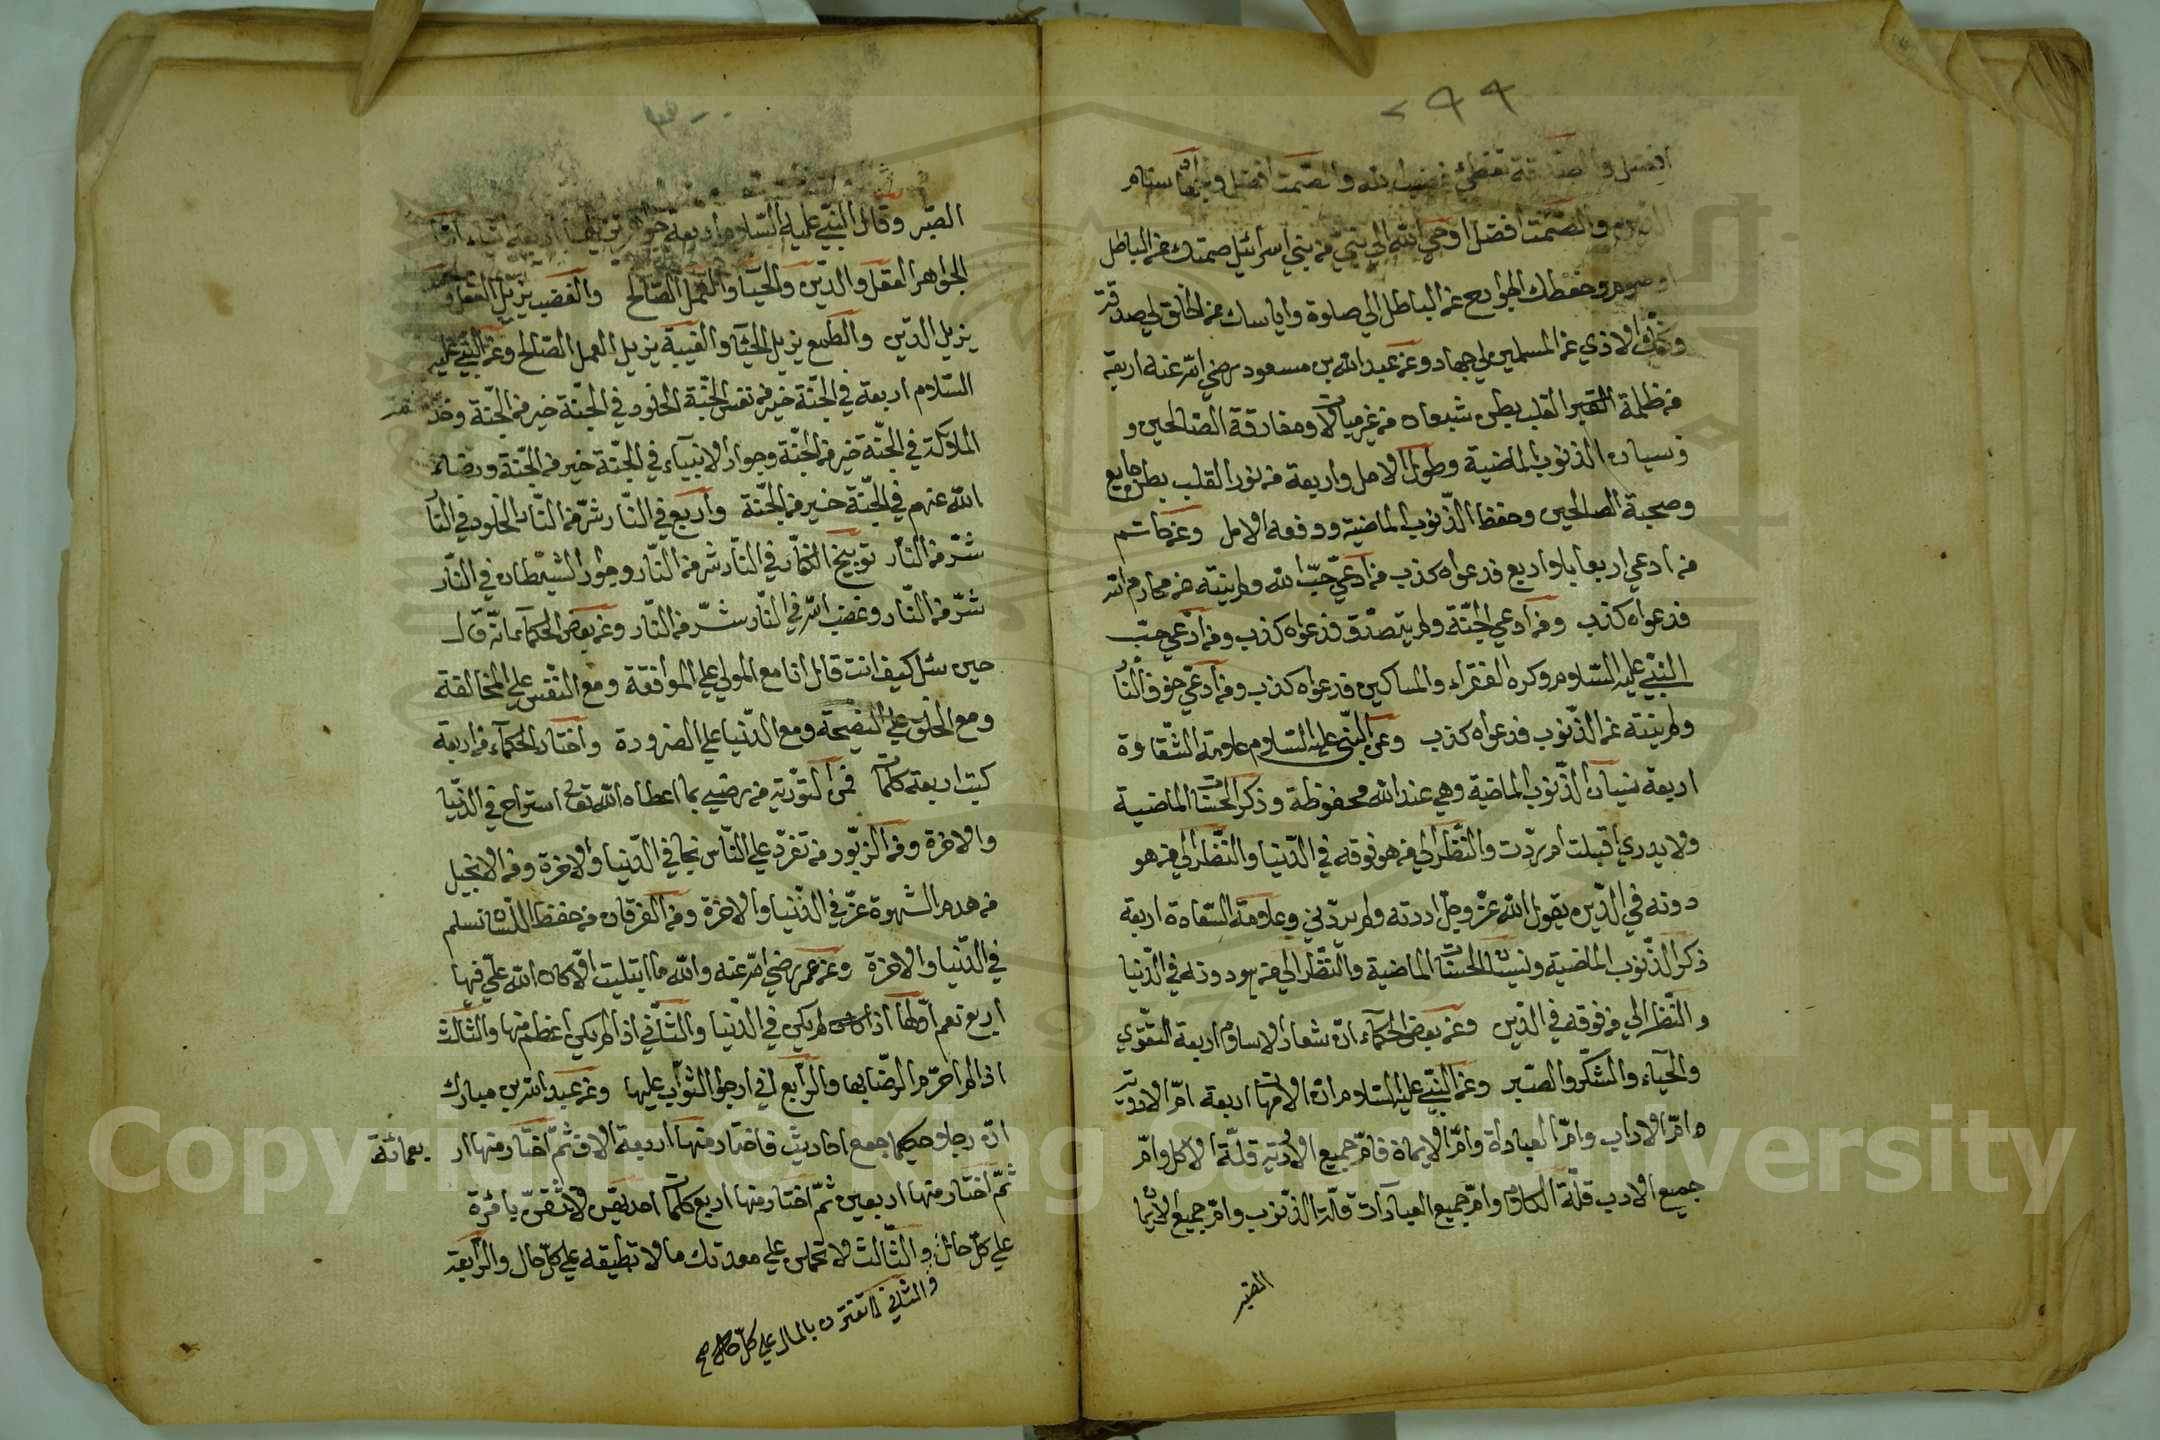 ٢٩٩
افضل والصدقة تطفئ غضب الله والصمت افضل
والصمت افضل اوحي الله الي نبي من بني اسرائيل صمتك عن الباطل
صوم وحفظك الجوارح عن الباطل الي صلوة واياسك عن الخلق لي صدقة
وكفك الاذي عن المسلمين لي جهاد وعن عبد الله بن مسعود رضي الله عنه اربعة
من ظلمة القلب بطن شبعان من غير مبالات ومفارقة الصالحين و
نسيان الذنوب الماضية وطول الامل واربعة من نور القلب بطن جايع
وصحبة الصالحين وحفظ الذنوب الماضية ودفعه الامل وعن حاتم
من ادعي اربعا بلا اربع فدعواه كذب من ادعي حبّ الله ولم ينته عن محارم الله
فدعواه كذب ومن ادعي الجنّة ولم يتصدق فدعواه كذب ومن ادعي حبّ
النبي عليه السلام وكره الفقراء والمساكين فدعواه كذب ومن ادعي خوف النار
ولم ينته عن الذنوب فدعواه كذب وعن النبي عليه السلام علامة الشقاوة
اربعة نسيان الذنوب الماضية وهي عند الله محفوظة وذكر الحسنات الماضية
ولا يدري اقبلت ام ردّت والنظر الي من هو فوقه في الدنيا والنظر الي من هو
دونه في الدين يقول الله عزّ وجل اردته ولم يردني وعلامة السعادة اربعة
ذكر الذنوب الماضية ونسيان الحسنات الماضية والنظر الي من هو دونه في الدنيا
والنظر الي من فوقه في الدين وعن بعض الحكماء ان شعار الاسلام اربعة التقوي
والحياء والشكر والصبر وعن النبي عليه السلام ان الامهات اربعة امّ الادوية
وامّ الاداب وامّ العبادة وامّ الاماني فامّ جميع الادوية قلّة الاكل وامّ
جميع الادب قلّة الكلام وامّ جميع العبادات قلّة الذنوب وامّ جميع الاماني
الصبر
٣٠٠
الصبر وقال النبي عليه السلام اربعة جواهر يزيلها اربعة اشياء امّا
الجواهر العقل والدين والحياء والعمل الصالح والغضب يزيل العقل و
يزيل الدين والطمع يزيل الحياء والغيبة يزيل العمل الصالح وعن النبي عليه
السلام اربعة في الجنّة خير من نفس الجنّة الخلود في الجنّة خير من الجنّة وخدمة
الملائكة في الجنّة خير من الجنّة وجوار الانبياء في الجنّة خير من الجنّة ورضاء
الله عنهم في الجنّة خير من الجنّة واربع في النار شرّ من النار الخلود في النار
شرّ من النار توبيخ الكفّار في النار شرّ من النار وجوار الشيطان في النار
شرّ من النار وغضب الله في النار شرّ من النار وعن بعض الحكماء انّه قال
حين سئل كيف انت قال انا مع المولي علي الموافقة ومع النفس علي المخالفة
ومع الخلق علي النصيحة ومع الدنيا علي الضرورة واختار الحكماء من اربعة
كتب اربعة كلمات فمن التورية من رضي بما اعطاه الله تعالي استراح في الدنيا
والاخرة ومن الزبور من تفرّد علي الناس نجا في الدنيا والاخرة ومن الانجيل
من هدم الشهوة عزّ في الدنيا والاخرة ومن الفرقان من حفظ اللسان سلم
في الدنيا والاخرة وعن عمر رضي الله عنه والله ما ابتليت الّا كان الله علي فيها
اربع نعم اوّلها اذا لم يكن في الدنيا والثاني اذا لم يكن اعظم منها والثالث
اذا لم احرّم الرضا بها والرابع اني ارجو الثواب عليها وعن عبد الله بن مبارك
انّ رجلا حكيما جمع احاديث فاختار منها اربعة الاف ثمّ اختار منها اربعمائة
ثمّ اختار منها اربعين ثمّ اختار منها اربع كلمات احديهن لا تثقنّ بامرءة
علي كلّ حال والثالث لا تحمل علي معدتك ما لا تطيقه علي كلّ حال والرابعة
والثاني لا تغترن بالمال علي كلّ حال صح
Copyright © King Saud University